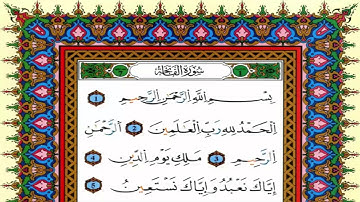 سُورَةُ الْفَاتِحَةِ
بِسْمِ اللَّهِ الرَّحْمَٰنِ الرَّحِيمِ ١
الْحَمْدُ لِلَّهِ رَبِّ الْعَالَمِينَ ٢ الرَّحْمَٰنِ
الرَّحِيمِ ٣ مَالِكِ يَوْمِ الدِّينِ ٤
إِيَّاكَ نَعْبُدُ وَإِيَّاكَ نَسْتَعِينُ ٥